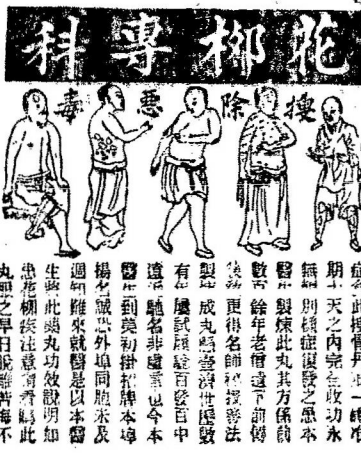 花柳專科
搜除惡毒
症此丹一
期十天之內完全收功永
無別種症復發之患本
醫生製煉此丸其方係前
數百餘年老僧遺下前傳
後更得名師秘授善法
製煉成丸懸壺濟世歷數
有年屢試屢驗百發百中
遠近馳名非虛言也今本
醫生到美初掛招牌本埠
揚名誠恐外埠同胞未及
週知難來就醫是以本醫
生將此藥丸功效說明如
患花柳疾注意須看此
丸服之早日脫離苦海不